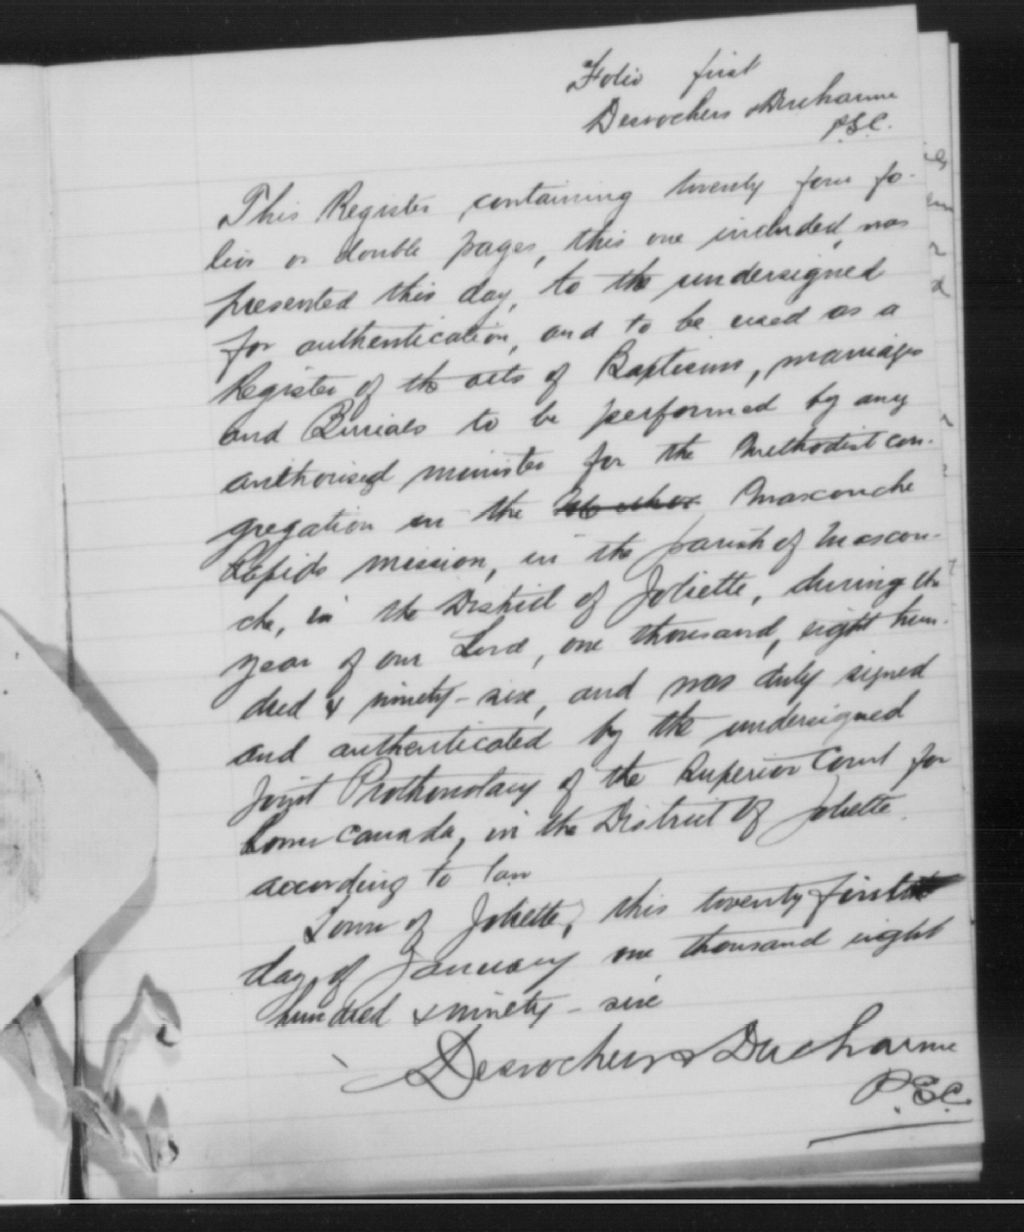 Folio first
Desrochers & Ducharme
P.S.C.
This Register containing twenty four fo-
lios or double pages, this one included, was
presented this day, to the undersigned
for authentication, and to be used as a
Register of the acts of Baptisms, marriages
and Burials to be performed by any
authorised minister for the Methodist con-
gregation in the Mascouche
Rapids mission, in the parish of Mascou-
che, in the District of Joliette, during the
year of our Lord, one thousand, eight hun-
dred & ninety-six, and was duly signed
and authenticated by the undersigned
Joint Prothonotary of the Superior Court for
Lower Canada, in the District of Joliette.
according to law
Town of Joliette, this twenty first
day of January one thousand eight
hundred & ninety-six
Desrochers & Ducharme
P.S.C.